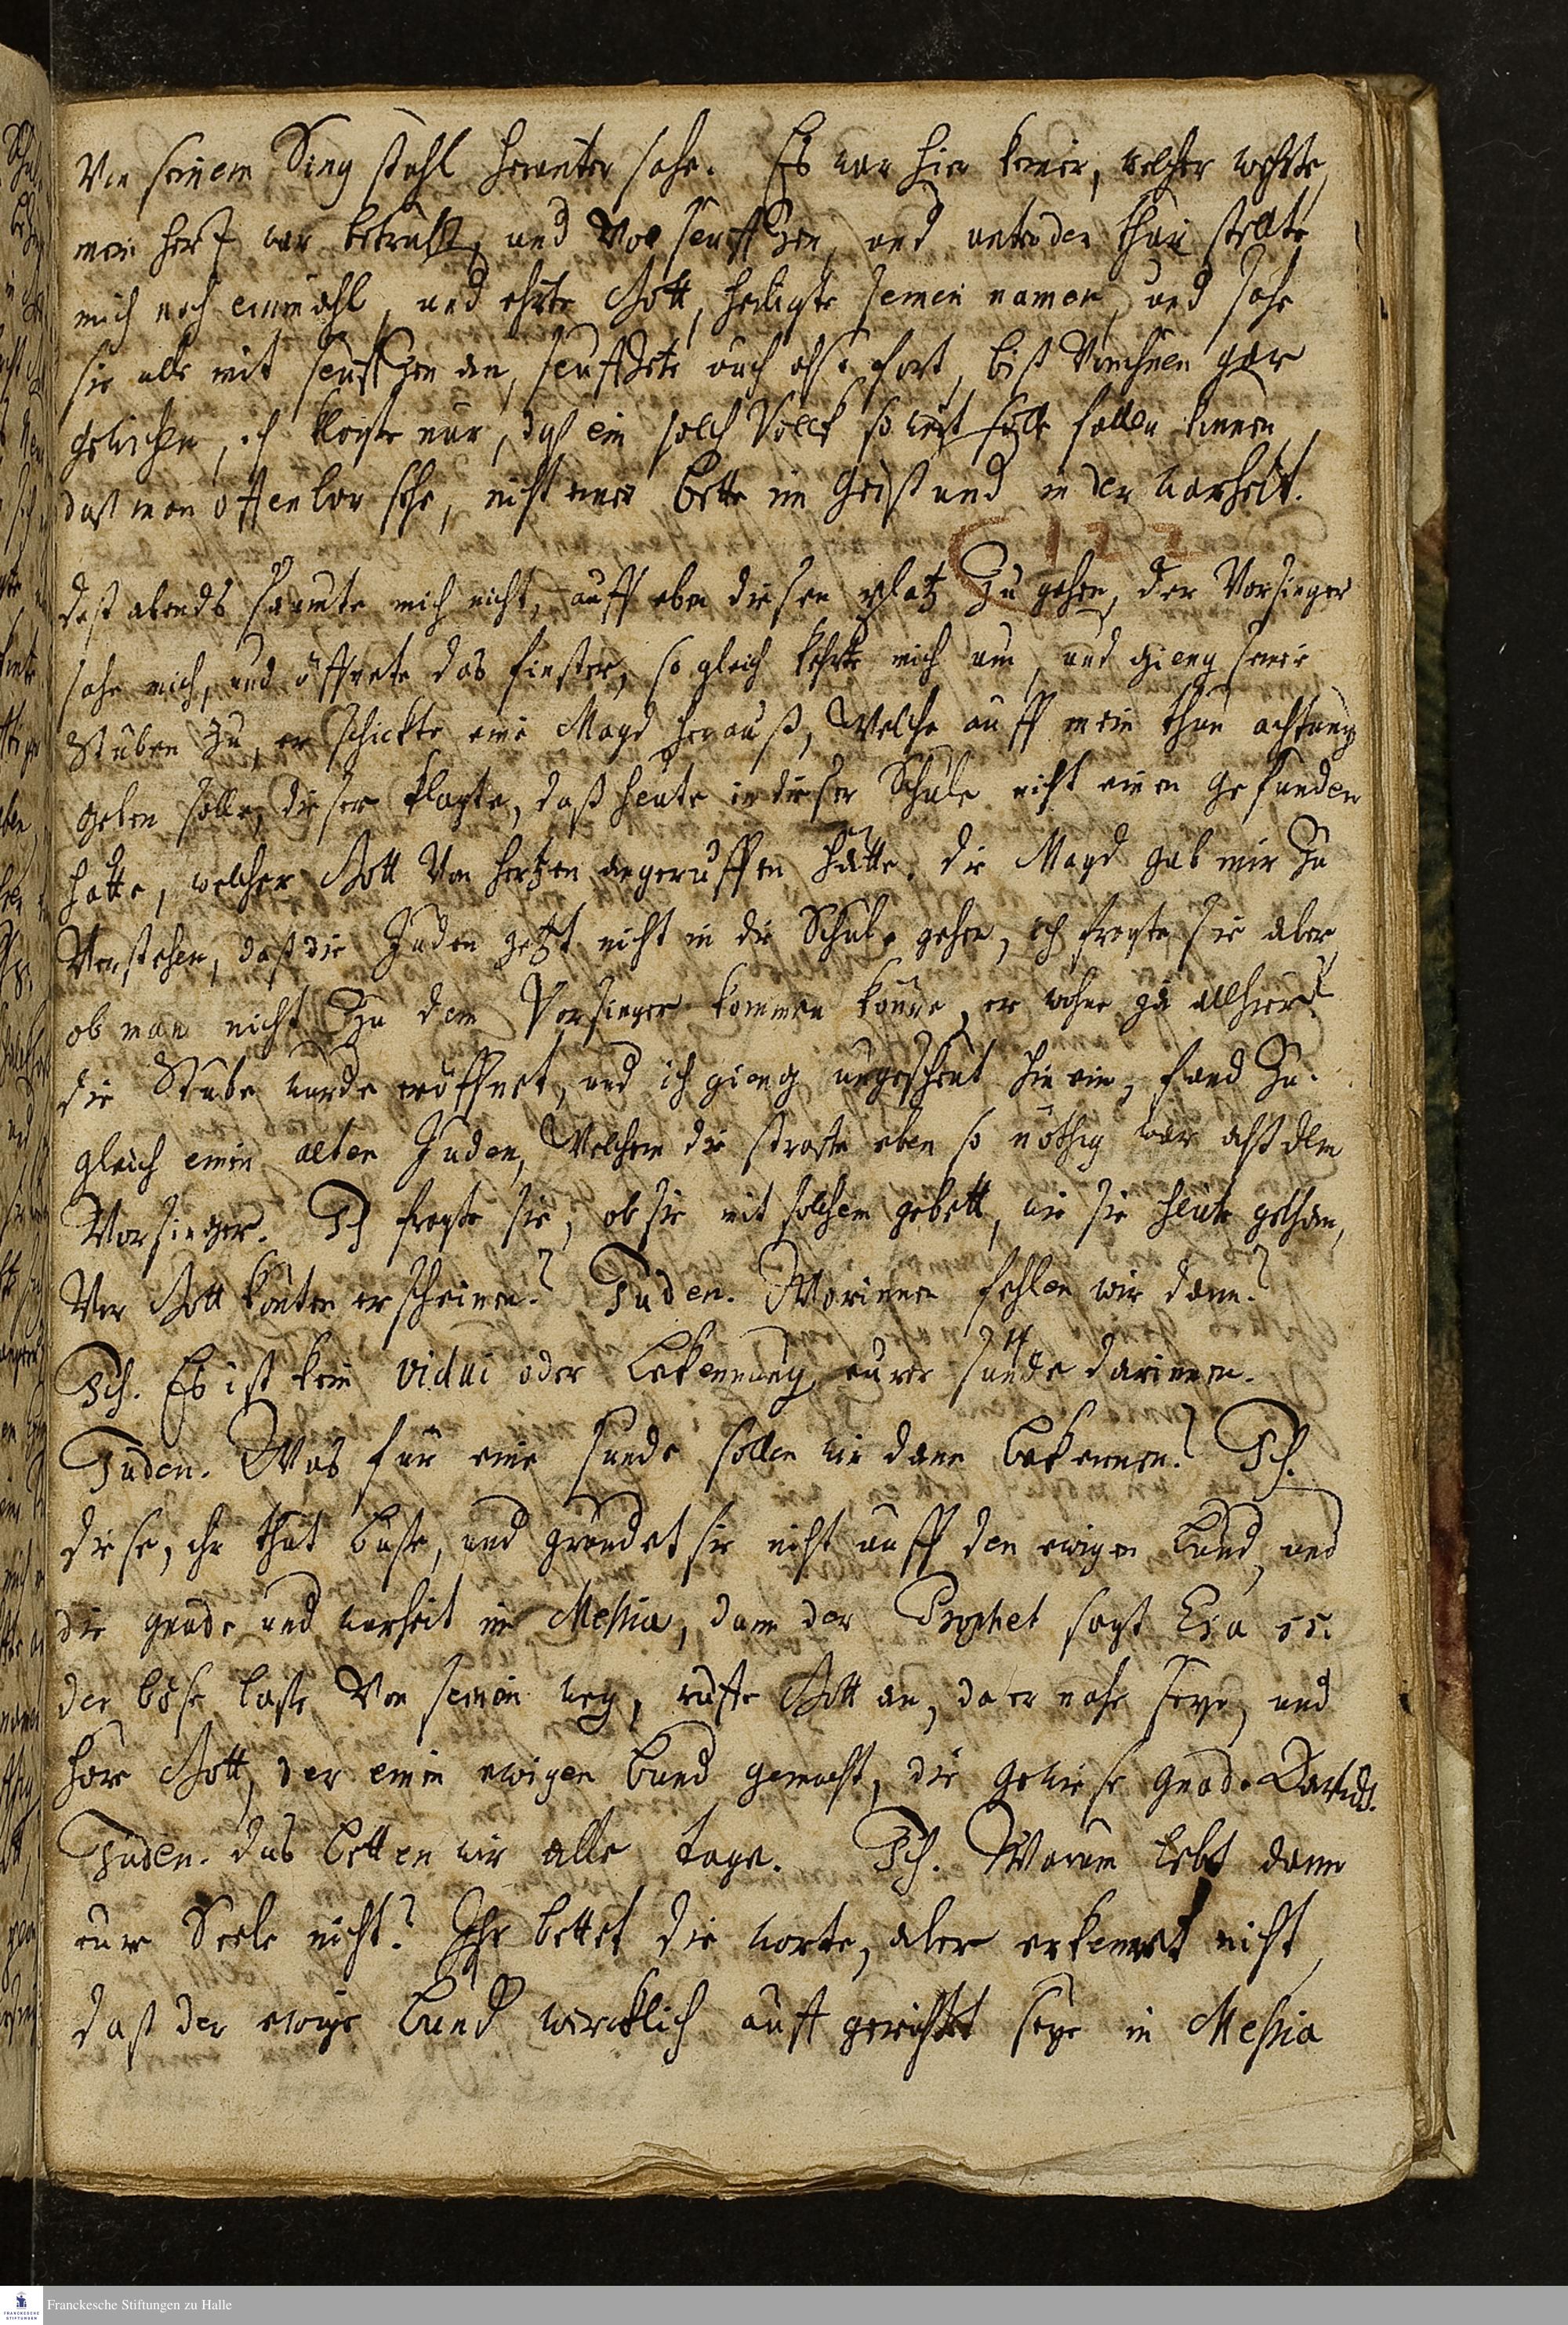 Von seinem Sing stuhl herunter sahe. Es war hier keiner, welcher wehrte,
mein hertz war betrübt, und Voll seufftzen, und unter der thür stellte
mich noch einmahl, und ehrte Gott, heiligte seinen namen, und sahe
sie alle mit seufftzen an, seufftzete auch also fort, biß Von ihnen gar
gewichen, ich klagte nur, daß ein solch Volck so weit solle fallen können,
daß man offenbar sehe, nicht einer bette im Geist und in der warheit.
122
deß abends saumte mich nicht, auff eben diesen platz Zu gehen, der Vorsinger
sahe mich, und öffnete das finster, so gleich kehrte mich um, und gieng seine
Stuben zu, er schickte eine Magd herauß, Welche auff mein thun achtung
geben solle, dieser klagte, daß heute in dieser Schule nicht einen gefunden
hatte, welcher Gott Von hertzen angeruffen hätte. die Magd gab mir zu
Verstehen, daß die Juden jetzt nicht in die Schule gehen, ich fragte sie aber,
ob man nicht Zu dem Vorsinger kommen könne, er wohne ja allhier?
die Stube wurde eröffnet, und ich gieng ungescheut hinein, fand Zu-
gleich einen alten Juden, Welchem die straffe eben so nöthig war alß dem
Vorsinger. Ich fragte sie, ob sie mit solchem gebett, wie sie heute gethan,
Vor Gott könten erscheinen? Juden. Worinnen fehlen wir dann?
Ich. Es ist kein vidui oder bekennung eurer sünde darinnen.
Juden. Was für eine sünde sollen wir dann bekennen? Ich.
diese, ihr thut buße, und gründet sie nicht auff den ewigen bund, und
die gnade und warheit in Messia, dann der Prophet sagt Esa 55.
der böse laße Von seinem weg, ruffe Gott an, da er nahe seye, und
höre Gott, der einen ewigen bund gemacht, die gewiese gnade Davids.
Juden. das betten wir alle tage. Ich. Warum lebt dann
eure Seele nicht? Ihr bettet die worte, aber erkennet nicht,
daß der ewige bund wircklich auffgerichtet seye in Messia
Franckesche Stiftungen zu Halle